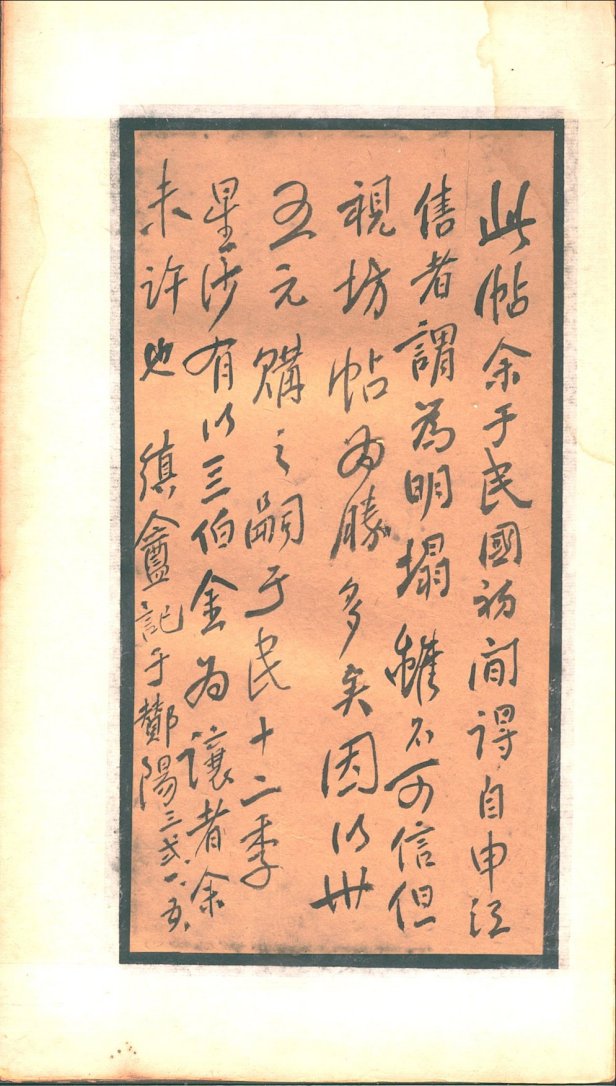 此帖余于民國初間得自申江
售者謂為明搨雖不可信但
視坊帖为勝多矣因以卅
五元購之嗣于民十二季
星沙有以三伯金为讓者余
未許也 縝盦記于酇陽三弍.一.五.